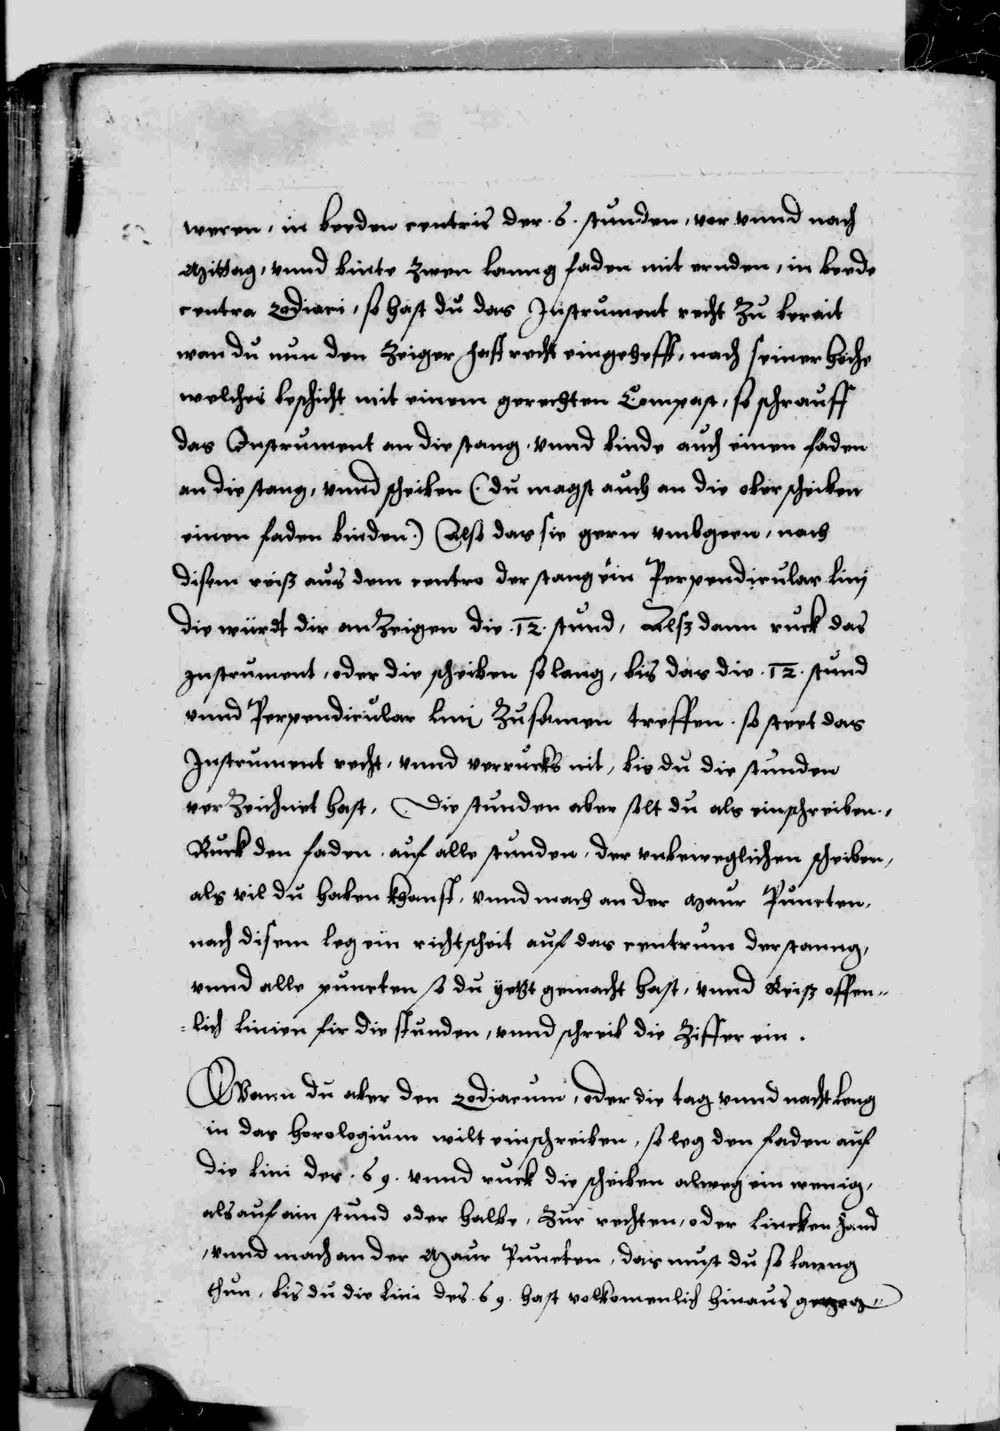 weren, in beeden centris der .6. stunden, vor vnnd nach
Mittag, vnnd binte zwen lanng faden mit ernden, in beede
centra zodiaci, so hast du das Instrument recht zu berait
wan du nun den Zeiger hast recht eingehefft, nach seiner höche
welches beschicht mit einem gerechten Compast, so schrauff
das Instrument an die stang, vnnd binde auch einen faden
an die stang, vnnd scheiben (du magst auch an die ober scheiben
einen faden binden.) Also das sie gern vmbgeen, nach
disem reiß aus dem centro der stang ein Perpendicular linj
die würdt dir an Zeigen die .12. stund, Alß dann ruck das
Instrument, oder die scheiben so lang, bis das die .12. stund
vnnd Perpendicular linj Zusamen treffen. so steet das
Instrument recht, vnnd verrucks nit, bis du die stunden
verzeichnet hast, Die stunden aber solt du als einschreiben.,
Ruck den faden auf alle stunden, der vnbeweglichen scheiben,
als vil du haben khanst, vnnd mach an der Maur Puncten,
nach disem leg ein richtscheit auf das centrum der stanng,
vnnd alle puncten so du yetzt gemacht hast, vnnd Reiß offen„
„lich linien fir die stunden, vnnd schreib die Ziffer ein.
Wann du aber den zodiacum, oder die tag vnnd nacht leng
in das horologium wilt einschreiben, so leg den faden auf
die lini des .69. vnnd ruck die scheiben alweg ein wenig,
als auf ain stund oder halbe, Zur rechten, oder lincken Hand
, vnnd mach an der Maur Puncten, das must du so lanng
thun, bis du die lini des .69. hast volkomenlich hinaus